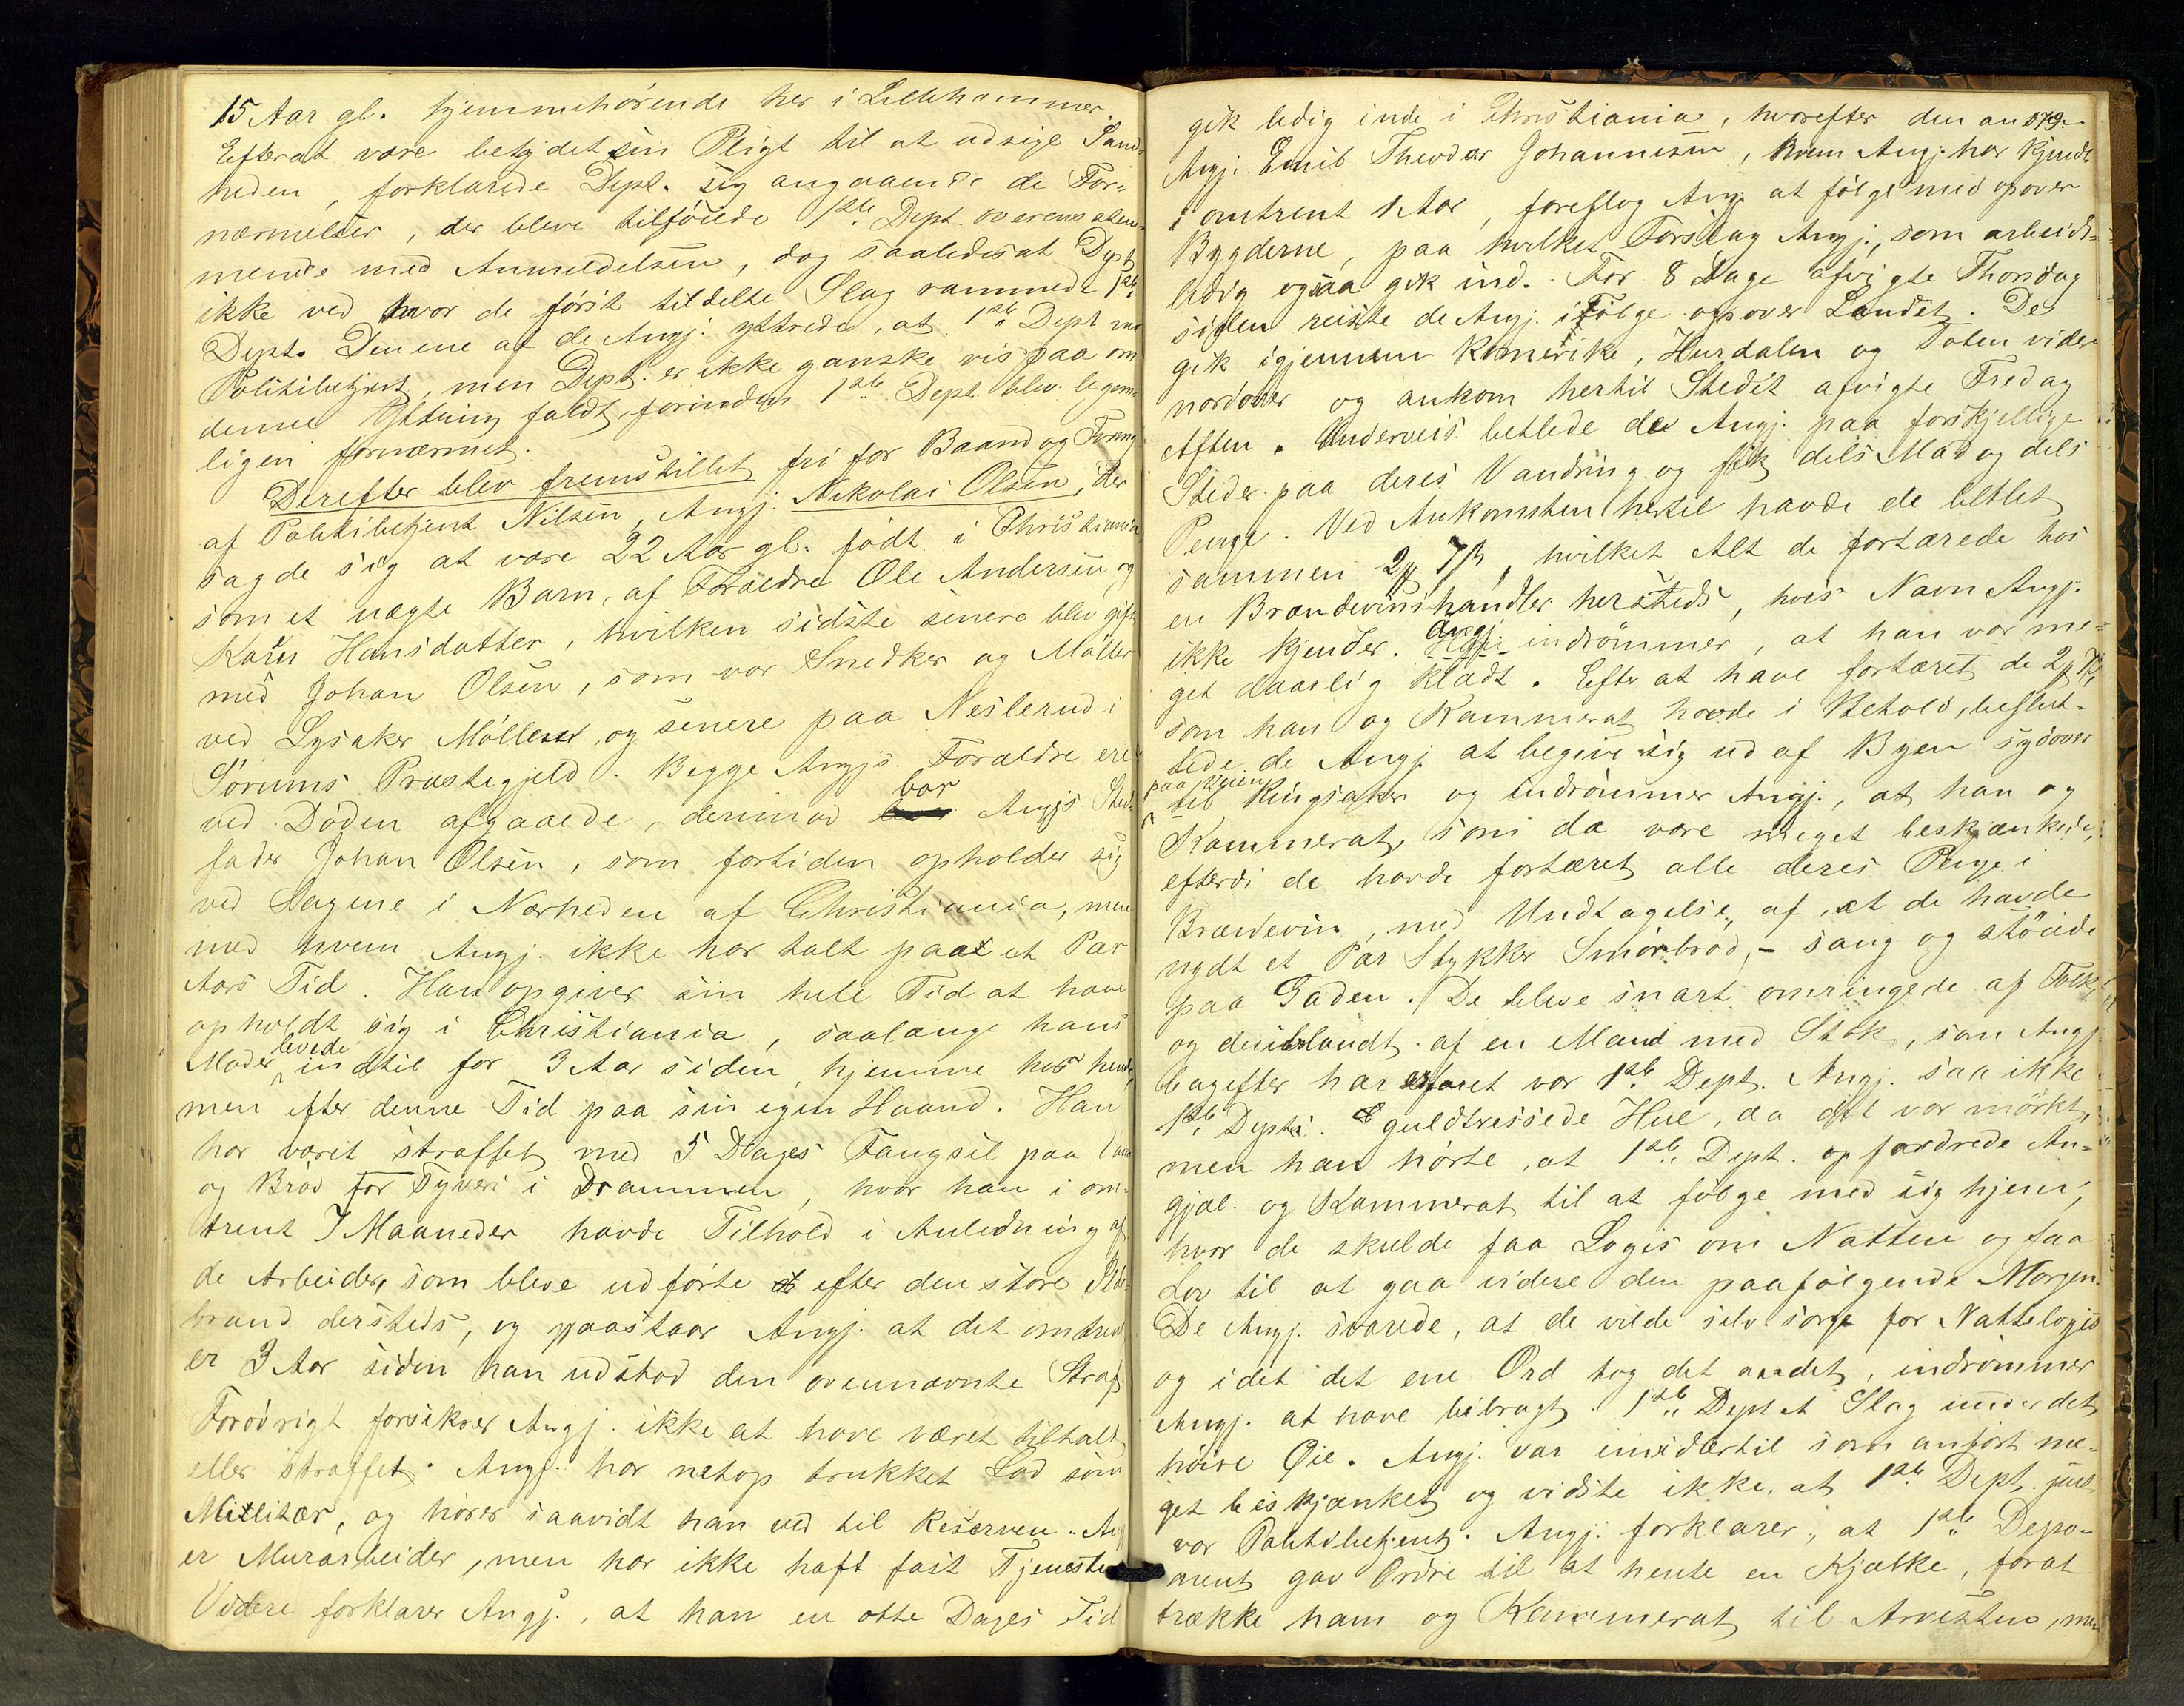 15 Aar gl. hjemmehørende her i Lillehammer.
Efterat være betydet sin Pligt til at udsige Sand-
heden, forklarede Dept. sig angaaende de For-
nærmelser, der bleve tilføiede 1ste Dept. overensstem-
mende med Anmeldelsen, dog saaledes at Dept.
ikke ved hvor de først tildelte Slag rammede 1ste
Dept. Den ene af de Angj. yttrede, at 1ste Dept var
Politibetjent, men Dept. er ikke ganske vis paa om
denne Yttring faldt, forinden 1ste Dept. blev legem-
ligen fornærmet.
Derefter blev fremstillet fri for Baand og Tvang
af Politibetjent Nilsen, Angj. Nikolai Olsen, der
sagde sig at være 22 Aar gl. født i Christiania
som et uægte Barn, af Forældre Ole Andersen og
Karen Hansdatter, hvilken sidste senere blev gift
med Johan Olsen, som var Snedker og Møller
ved Lysaker Møllerer, og senere paa Neslerud i
Sørums Præstegjeld. Begge Angjs. Forældre ere
ved Døden afgaaede, derimod bor Angjs. Sted-
fader Johan Olsen, som fortiden opholder sig
ved Sagene i Nærheden af Christiania, men
med hvem Angj. ikke har talt paa et Par
Aars Tid. Han opgiver sin hele Tid at have
opholdt sig i Christiania, saalænge hans
Moder levede indtil for 3 Aar siden, hjemme hos hende,
men efter denne Tid paa sin egen Haand. Han
har været straffet med 5 Dages Fængsel paa Vand
og Brød for Tyveri i Drammen, hvor han i om-
trent 7 Maaneder havde Tilhold i Anledning af
de Arbeider, som bleve udførte efter den store Ilde-
brand dersteds, og paastaar Angj. at det omtrent
er 3 Aar siden han udstod den ovennævnte Straf.
Forøvrigt forsikrer Angj. ikke at have været tiltalt
eller straffet. Angj. har netop trukket Lod som
Militær, og hører saavidt han ved til Reserven. Angj
er Murarbeider, men har ikke haft fast Tjeneste
Videre forklarer Angj., at han en otte Dages Tid
579.
gik ledig inde i Christiania, hvorefter den anden
Angj. Emil Theodor Johannesen, hvem Angj. har kjendt
i omtrent 1 Aar, foreslog Angj. at følge med opover
Bygderne, paa hvilket Forslag Angj., som arbeids-
ledig ogsaa gik ind. For 8 Dage afvigte Thorsdag
siden reiste de Angj. i Følge opover Landet. De
gik igjennem Romerike, Hurdalen og Toten videre
nordover og ankom hertil Stedet afvigte Fredag
Aften. Underveis betlede de Angj. paa forskjellige
Steder paa deres Vandring og fik dels Mad og dels
Penge. Ved Ankomsten hertil havde de betlet
sammen 2 7 ß, hvilket Alt de fortærede hos
en Brændevinshandler hersteds, hvis Navn Angj.
ikke kjender. Angj. indrømmer, at han var me-
get daarlig klædt. Efter at have fortæret de 2 7 ß,
som han og Kammerat havde i Behold, beslut-
tede de Angj. at begive sig ud af Byen sydover
paa Veien til Ringsaker og indrømmer Angj., at han og
Kammerat, som da vare meget beskjænkede,
efterdi de havde fortæret alle deres Penge i
Brændevin, med Undtagelse af, at de havde
nydt et Par Stykker Smørbrød, - sang og støiede
paa Gaden. De bleve snart omringede af Folk
og deriblandt af en Mand med Stok, som Angj
bagefter har erfaret var 1ste Dept. Angj. saa ikke
1ste Depts. guldtressede Hue, da det var mørkt,
men han hørte, at 1ste Dept. opfordrede An-
gjæl. og Kammerat til at følge med sig hjem,
hvor de skulde faa Logis om Natten og faa
Lov til at gaa videre den paafølgende Morgen.
De Angj. svarede, at de vilde selv sørge for Nattelogis
og idet det ene Ord tog det andet, indrømmer
Angj. at have bibragt 1ste Dept et Slag under det
høire Øie. Angj. var imidlertid som anført me-
get beskjænket og vidste ikke, at 1ste Dept.
var Politibetjent. Angj. forklarer, at 1ste Depo-
nent gav Ordre til at hente en Kjælke, forat
trække ham og Kammerat til Arresten, men